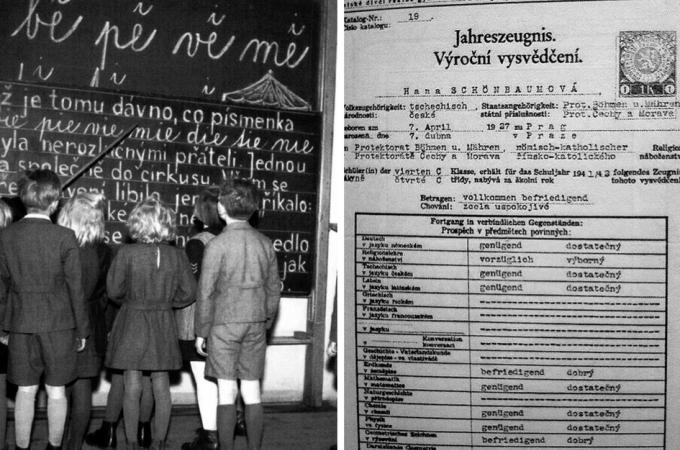 bě pě vě mě
ž je tomu dávno, co písmenka
pie vie mie die tie nie
yla nerozlučnými přáteli. Jednou
a společně do cirkusu.
líbil
říkalo:
edlo
jak
Katalog-Nr.: 19
Číslo katalogu:
Jahreszeugnis.
Výroční vysvědčení.
1K
Hana SCHÖNBAUMOVÁ
Volkszugehörigkeit: tschechisch, Staatsangehörigkeit: Prot. Böhmen u. Mähren,
národnosti: české státní příslušnosti: Prot. Čechy a Morava
geboren am 7. April 1927 zu Prag
narozená dne 7. dubna v Praze
in Protektorat Böhmen u. Mähren, römisch-katholischer Religion
Protektorátě Čechy a Morava římsko-katolického náboženství
Schüler(in) der vierten C Klasse, erhält für das Schuljahr 1941/42 folgendes Zeugnis
čtvrté C třídy, nabývá za školní rok tohoto vysvědčení
Betragen: vollkommen befriedigend
Chování: zcela uspokojivé
Fortgang in verbindlichen Gegenständen:
Prospěch v předmětech povinných:
Deutsch
v jazyku německém genügend dostatečný
Religionslehre
v náboženství vorzüglich výborný
Tschechisch
v jazyku českém genügend dostatečný
Latein
v jazyku latinském genügend dostatečný
Griechisch
v jazyku řeckém
Französisch
v jazyku francouzském
v jazyku
Konversation
konversaci
Geschichte - Vaterlandskunde
v dějepise - ve vlastivědě
Erdkunde
v zeměpise befriedigend dobrý
Mathematik
v matematice genügend dostatečný
Naturgeschichte
v přírodopise
Chemie
v chemii genügend dostatečný
Physik
ve fysice genügend dostatečný
Geometrisches Zeichnen
v rýsování befriedigend dobrý
Darstellende Geometrie